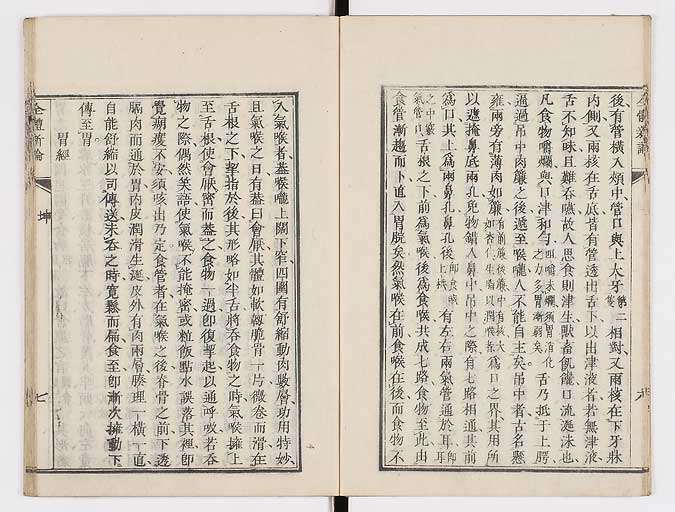 後有管橫入頰中管口與上大牙第二隻相對又兩核在下牙牀
內側又兩核在舌底皆有管透出舌下以出津液者若無津液
舌不知味且難吞嚥故人思食則津生獸畜飢饞口流涎沫也
凡食物嚼爛與口津和勻即嚼未爛須胃消化之力多胃漸弱矣舌乃抵于上腭
逼過吊中肉簾之後遞至喉嚨人不能自主矣吊中者古名懸
雍兩旁有薄肉如簾有前簾後簾中有核大如杏仁生津以潤喉者為口之界其用所
以遮掩鼻底兩孔免物錯入鼻中吊中之際有七路相通其前
為口其上為兩鼻孔鼻孔後即食喉上截有左右兩氣管通於耳即耳
之中竅氣管口舌根之下前為氣喉後為食喉共成七路食物至此由
食管漸趨而下直入胃脘矣然氣喉在前食喉在後而食物不
全體新論
坤
七
入氣喉者蓋喉嚨上闊下窄四圍有舒縮動肉數層功用特妙
且氣喉之口有蓋曰會厭其體如軟韌脆骨一片微卷而滑在
舌根之下擘指於後其形略如半舌將吞食物之時氣喉擁上
至舌根使會厭密而蓋之食物一過即復擘起以通呼吸若吞
物之際偶然笑語使氣喉不能掩密或粒飯點水誤落其裡即
覺癆癢不安須咳出乃定食管者在氣喉之後脊骨之前下透
膈肉而通於胃肉皮潤滑生涎皮外有肉兩層腠理一橫一直
自能舒縮以司傳送未吞之時寬鬆而扁食至即漸次擁動下
傳至胃
胃經